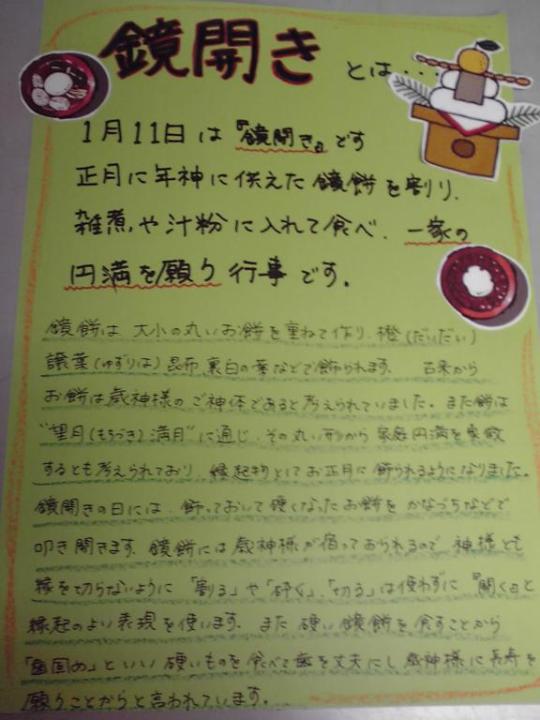 鏡開き とは・・・
1月11日は『鏡開き』です
正月に年神に供えた鏡餅を割り、
雑煮や汁粉に入れて食べ、一家の
円満を願う行事です。
鏡餅は、大小の丸いお餅を重ねて作り、橙(だいだい)
譲葉(ゆずりは)昆布、裏白の葉などで飾られます。 古来から
お餅は歳神様のご神体であると考えられていました。また餅は
"望月(もちづき)満月"に通じ、その丸い形から家庭円満を象徴
するとも考えられており、縁起物としてお正月に飾られるようになりました。
鏡開きの日には、飾っておいて硬くなったお餅をかなづちなどで
叩き開きます。鏡餅には歳神様が宿っておられるので、神様とも
縁を切らないように「割る」や「砕く」、「切る」は使わずに『開く』と
縁起のよい表現を使います。また硬い鏡餅を食すことから
「歯固め」といい硬いものを食べて歯を丈夫にし歳神様に長寿を
願うことからと言われています。